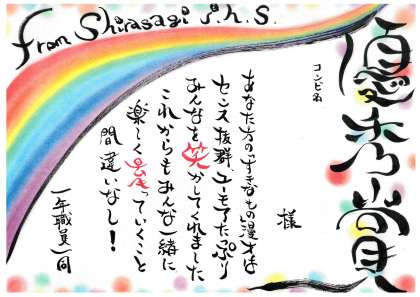 from Shirasagi j.h.s.
優秀賞
コンビ名
様
あなた方の「すきなもの漫才」は
センス抜群、ユーモアたっぷり
みんなを笑かしてくれました
これからもみんな一緒に
楽しく走っていくこと
間違いなし!
一年職員一同